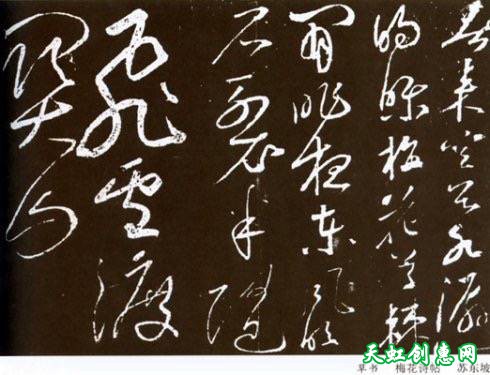 春來空谷水潺潺
的皪梅花草棘
間昨夜東風吹
石裂半隨
飛雪渡
關山
天虹创意网
草书 梅花诗帖 苏东坡